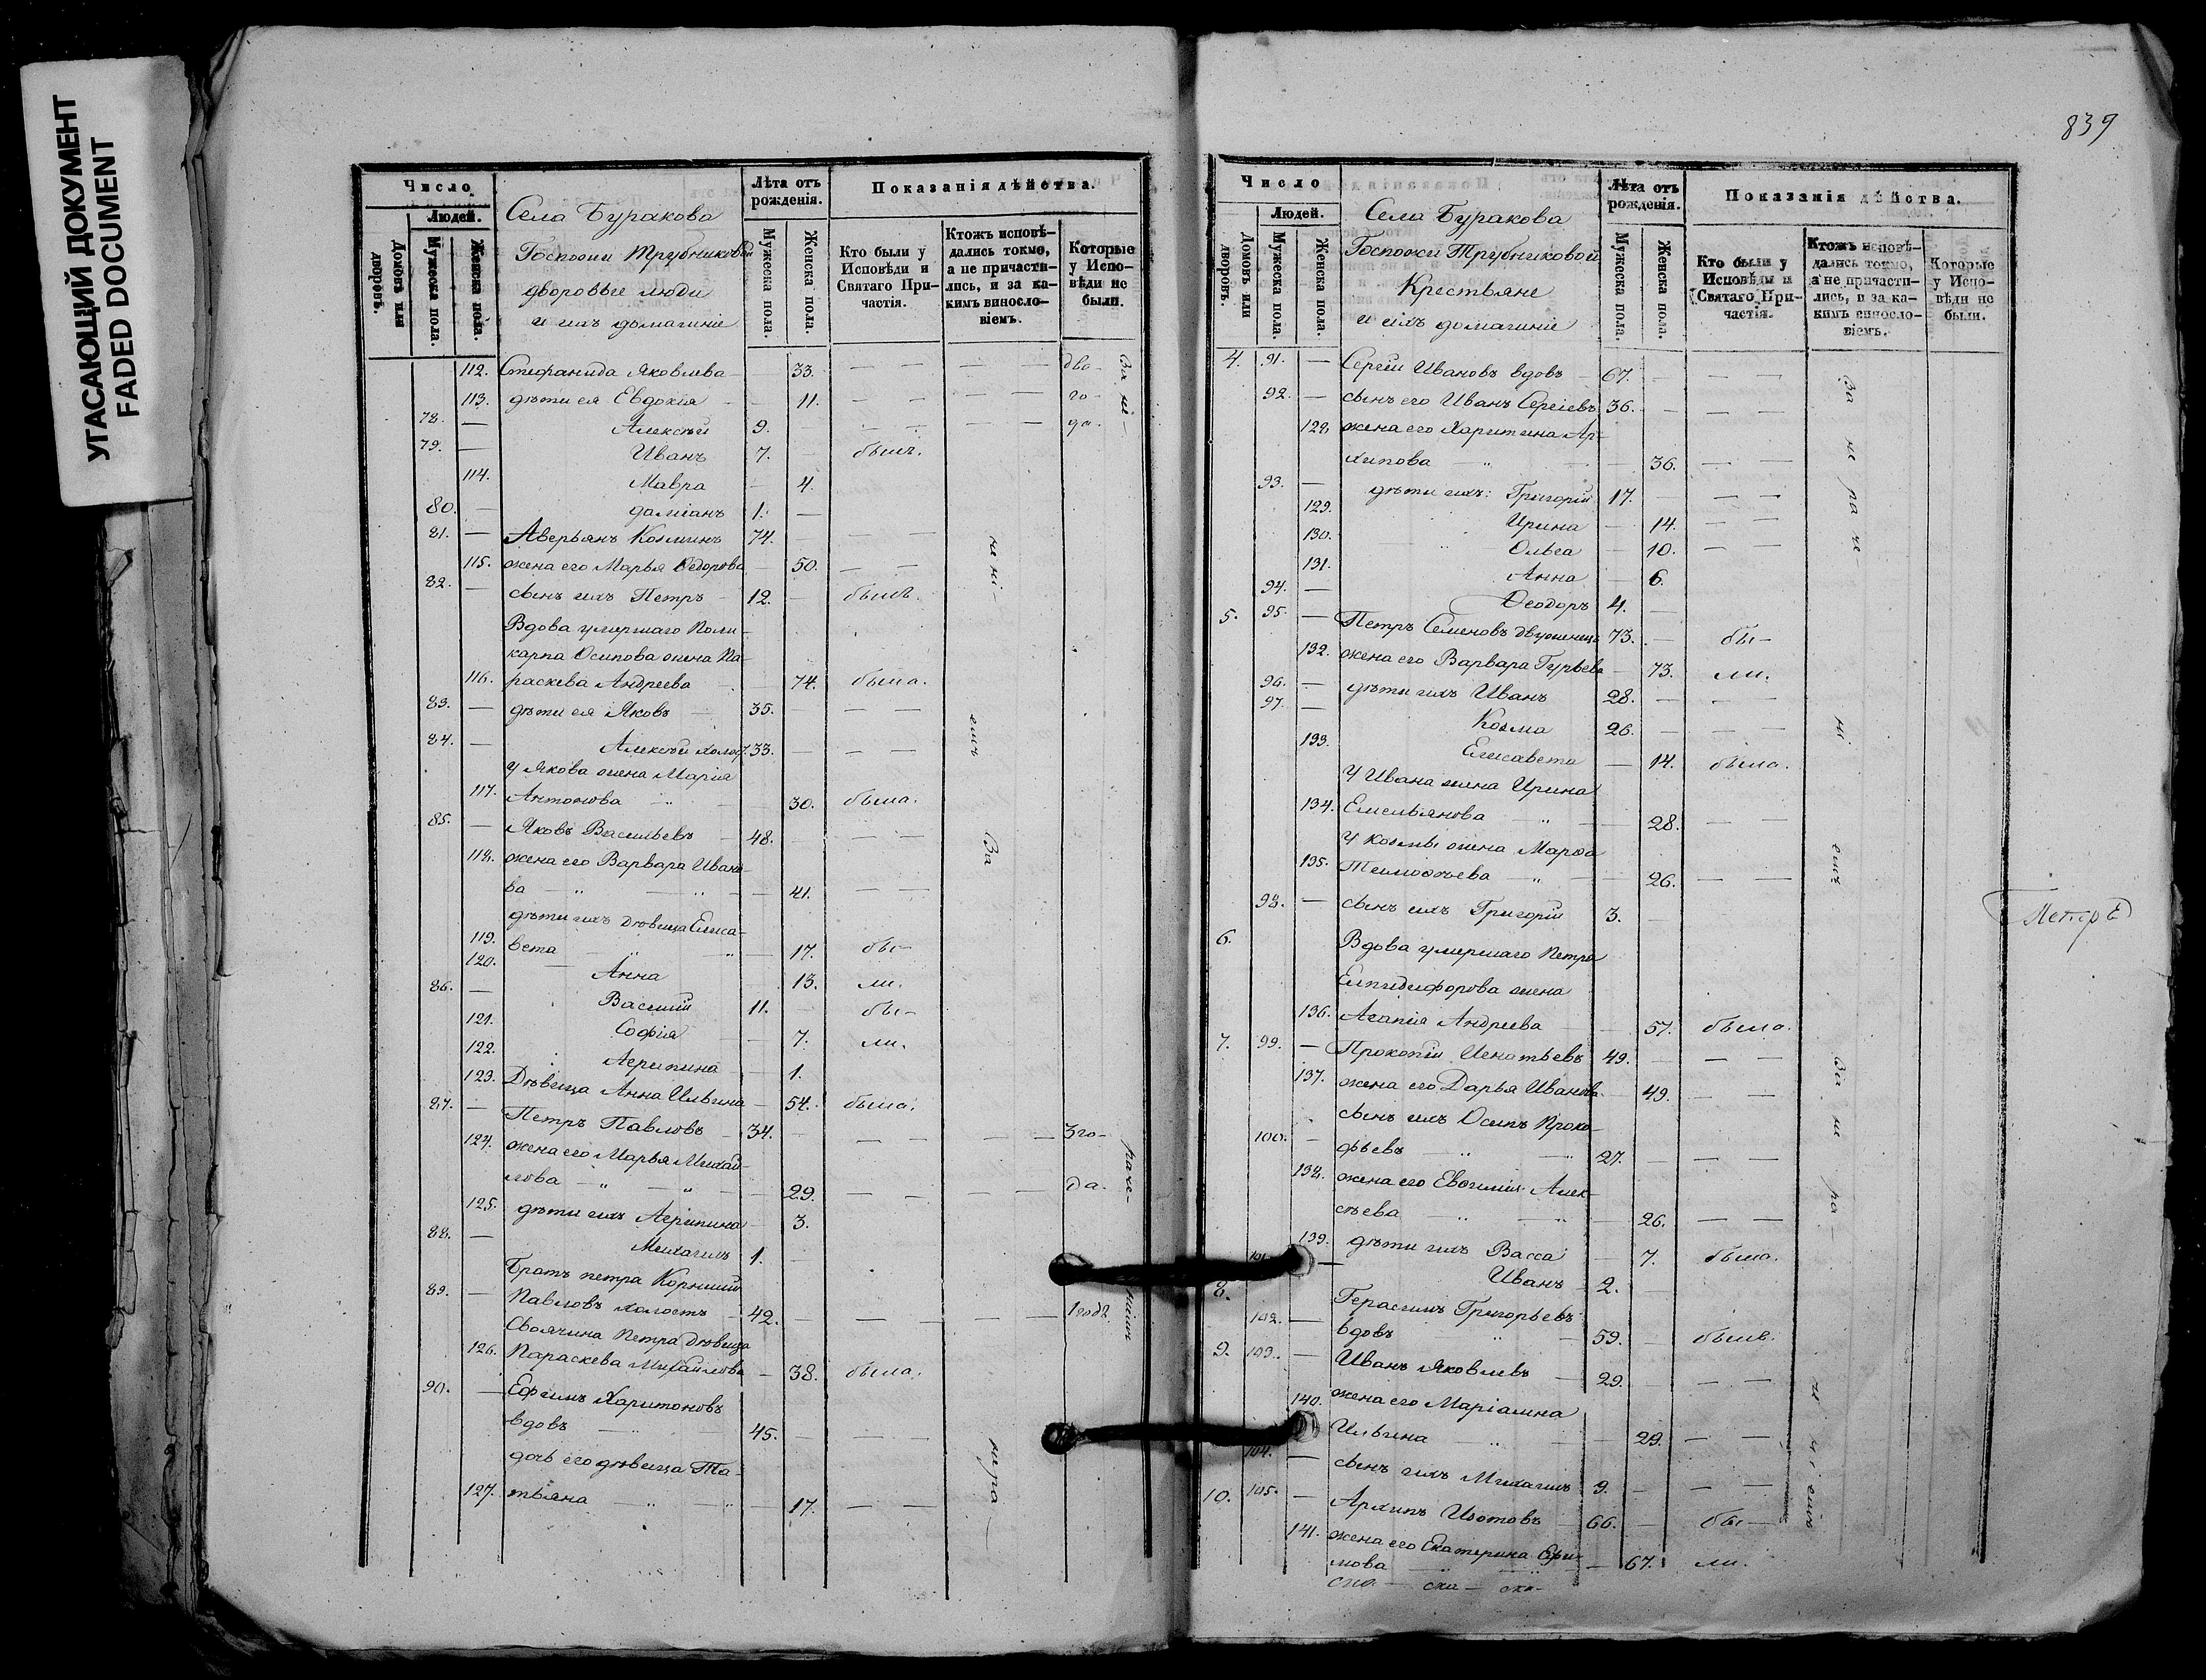 УГАСАЮЩИЙ ДОКУМЕНТ
FADED DOCUMENT
Число
Людей.
Домовъ или дворовъ.
Мужеска пола.
Женска пола.
Села Буракова
Госпожи Трубниковой
дворовые люди
и ихъ домашніе
Лѣта отъ рожденія.
Мужеска пола.
Женска пола.
Показанія дѣйства.
Кто были у Исповѣди и Святаго При-частія.
Ктожъ исповѣ-дались токмо, а не причасти-лись, и за ка-кимъ винослo-віемъ.
Которые у Испо-вѣди не были.
112. Стефанида Яковлева 33. два-
113. дѣти ея Евдокія 11. го-
78. Алексѣй 9. да.
79. Иванъ 7. былъ.
114. Мавра 4.
80. даміанъ 1.
81. Аверьянъ Козминъ 74.
115. жена его Марья Ѳедорова 50.
82. сынъ ихъ Петръ 12. былъ.
Вдова умершаго Поли-
карпа Осипова жена Па-
116. раскева Андреева 74. была.
83. дѣти ея Яковъ 35.
84. Алексѣй холос. 33.
у Якова жена Марія
117. Антонова 30. была.
85. Яковъ Васильевъ 48.
118. жена его Варвара Ивано-
ва 41.
дѣти ихъ дѣвица Елиса-
119. вета 17. бы-
120. Анна 13. ли.
86. Василій 11. бы-
121. Софія 7. ли.
122. Агрипина 1.
123. Дѣвица Анна Ильина 54. была.
87. Петръ Павловъ 34. 3 го-
124. жена его Марья Михай-
лова 29. да.
125. дѣти ихъ Агрипина 3.
88. Михаилъ 1.
Братъ петра Корнилій
89. Павловъ холостъ 42. 1 годъ
Своячина Петра дѣвица
126. Параскева Михайлова 38. была.
90. Ефимъ Харитоновъ
вдовъ 45.
дочь его дѣвица Та-
127. тьяна 17.
839
Число
Людей.
Домовъ или дворовъ.
Мужеска пола.
Женска пола.
Села Буракова
Госпожи Трубниковой
Крестьяне
и ихъ домашніе
Лѣта отъ рожденія.
Мужеска пола.
Женска пола.
Показанія дѣйства.
Кто были у Исповѣди и Святаго При-частія.
Ктожъ исповѣ-дались токмо, а не причасти-лись, и за ка-кимъ винослo-віемъ.
Которые у Испо-вѣди не были.
4. 91. Сергій Ивановъ вдовъ 67.
92. сынъ его Иванъ Сергіевъ 36.
128. жена его Харитина Ар-
хипова 36.
93. дѣти ихъ: Григорій 17.
129. Ирина 14.
130. Ольга 10.
131. Анна 6.
94. Ѳеодоръ 4.
5. 95. Петръ Семеновъ двуженецъ 73. бы-
132. жена его Варвара Гурьева 73. ли.
96. дѣти ихъ Иванъ 28.
97. Козма 26.
133. Елисавета 14. была.
у Ивана жена Ирина
134. Емельянова 28.
у Козмы жена Марѳа
135. Тимоѳѣева 26.
98. сынъ ихъ Григорій 3.
6. Вдова умершаго Петра
Елпидифорова жена
136. Агапія Андреева 57. была.
7. 99. Прокопій Игнатьевъ 49.
137. жена его Дарья Иванова 49.
сынъ ихъ Осипъ Проко-
100. фьевъ 27.
138. жена его Евѳимія Алек-
сѣева 26.
139. дѣти ихъ Васса 7. была.
101. Иванъ 2.
8. Герасимъ Григорьевъ
102. вдовъ 59. былъ.
9. 103. Иванъ Яковлевъ 29.
140. жена его Маріамна
Ильина 29.
104. сынъ ихъ Михаилъ 9.
10. 105. Архипъ Изотовъ 66. бы-
141. жена его Екатерина Ефи-
мова 67. ли.
Петръ